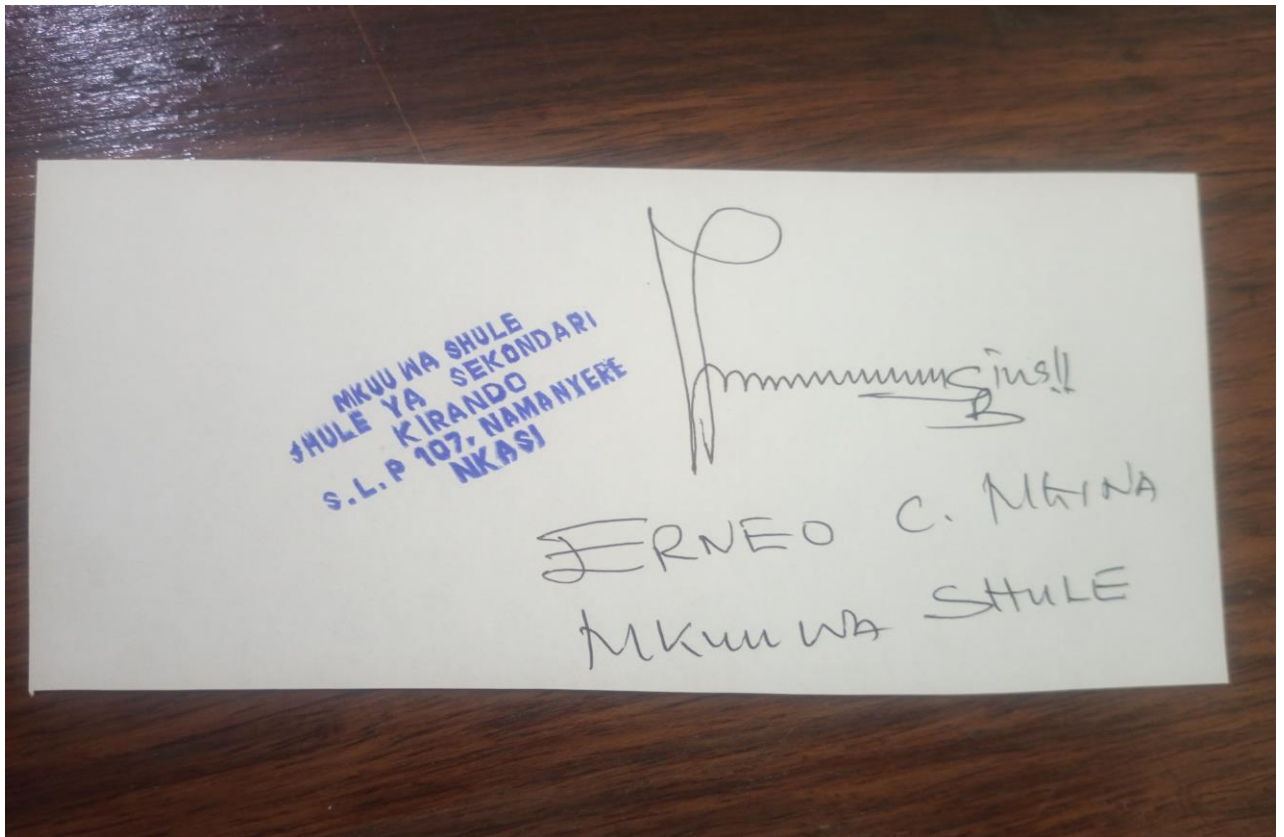 MKUU WA SHULE
SHULE YA SEKONDARI
KIRANDO
S.L.P 107, NAMANYERE
NKASI
ERNEO C.
MKUU WA SHULE